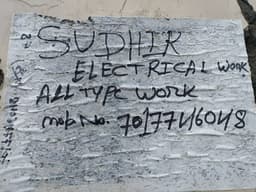 SUDHIR
ELECTRICAL WORK
ALL TYPE WORK
mob No. 7017746048